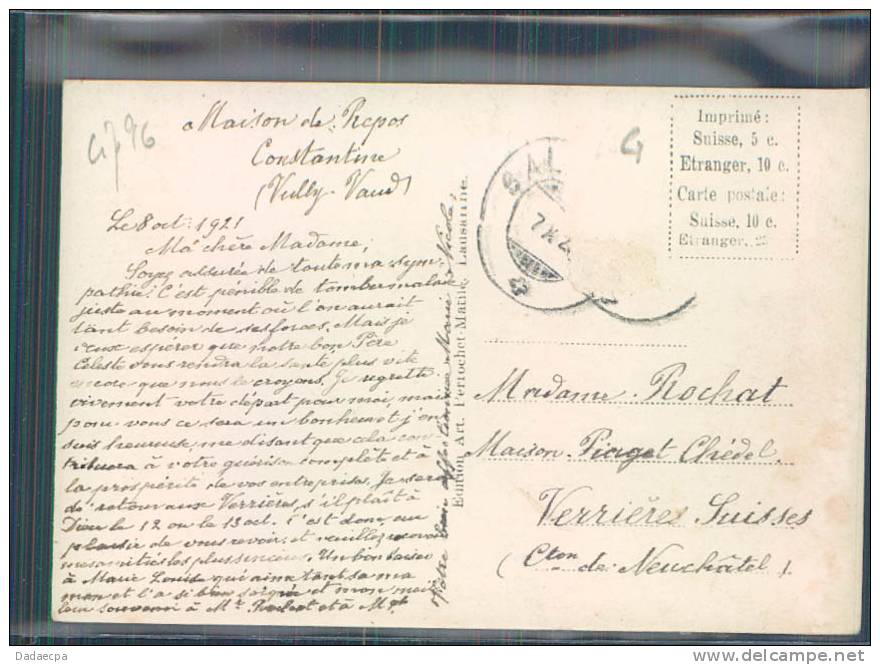 Maison de Repos
Constantine
(Vully-Vaud)
Le 8 oct. 1921
Ma chère Madame,
Soyez assurée de toute ma sym-
pathie. C'est pénible de tomber malade
juste au moment où l'on aurait
tant besoin de ses forces. Mais je
veux espérer que notre bon Père
Céleste vous rendra la santé plus vite
encore que nous le croyons. Je regrette
vivement votre départ pour moi, mais
pour vous ce sera un bonheur et j'en
suis heureuse, me disant que cela con-
tribuera à votre guérison complète et à
la prospérité de vos entreprises. Je serai
de retour aux Verrières, s'il plaît à
Dieu le 12 ou le 13 oct. C'est donc au
plaisir de vous revoir, et veuillez
mes amitiés les plus sincères. Un bon baiser
à Marie Louise qui aime tant sa ma
man et l'a si bien soignée et mon meil
leur souvenir à Mr. et à
Votre bien affectionnée Marie Nicole.
Edition Art. Perrochet-Matile, Lausanne.
Imprimé:
Suisse, 5 c.
Etranger, 10 c.
Carte postale:
Suisse, 10 c.
Etranger, 25
Madame Rochat
Maison Piaget Chédel
Verrières Suisses
(Cton de Neuchâtel)
Dadaecpa
www.delcampe.net